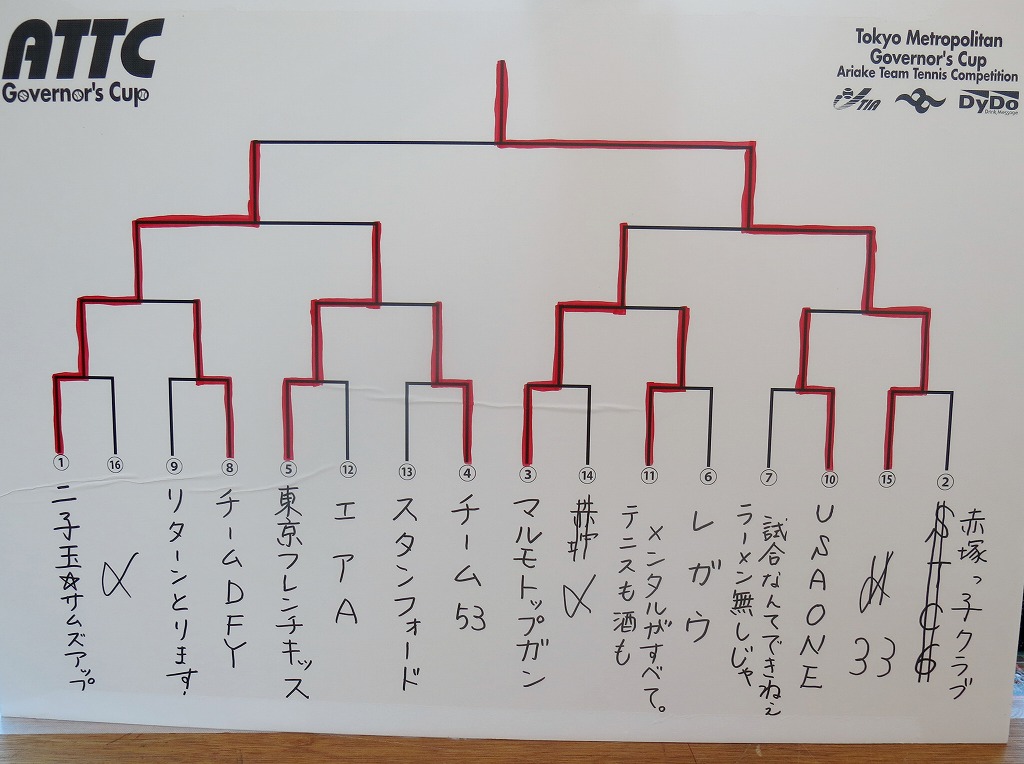 ATTC
Governor's Cup
Tokyo Metropolitan
Governor's Cup
Ariake Team Tennis Competition
TIA
DyDo
Drink, Message
① 二子玉☆サムズアップ
⑯
⑨ リターンとります!
⑧ チームDFY
⑤ 東京フレンチキッス
⑫ エアA
⑬ スタンフォード
④ チーム53
③ マルモトップガン
⑭
⑪ メンタルがすべて。
テニスも酒も
⑥ レガウ
⑦ 試合なんてできねぇ
ラーメン無しじゃ
⑩ USAONE
⑮ 33
② 赤塚っ子クラブ